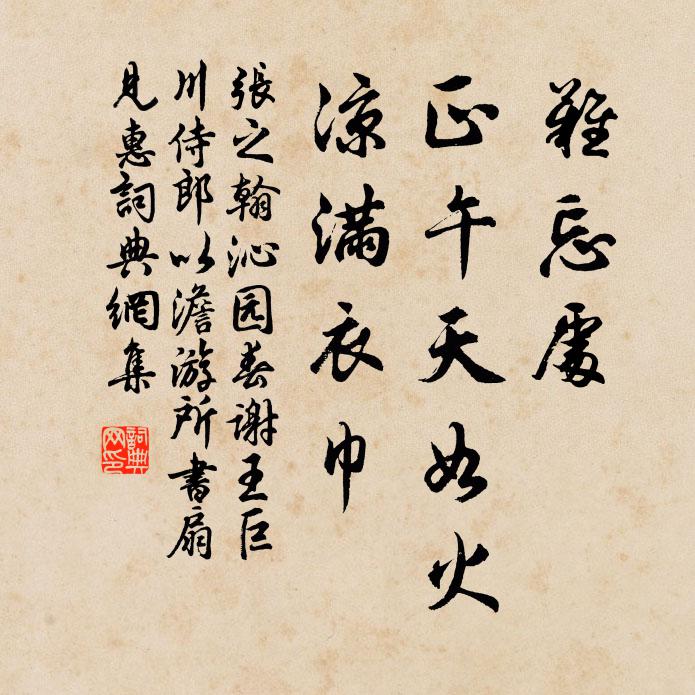 難忘處
正午天如火
涼滿衣巾
張之翰沁园春谢王巨
川侍郎以澹游所書扇
見惠詞典網集
詞典
网印